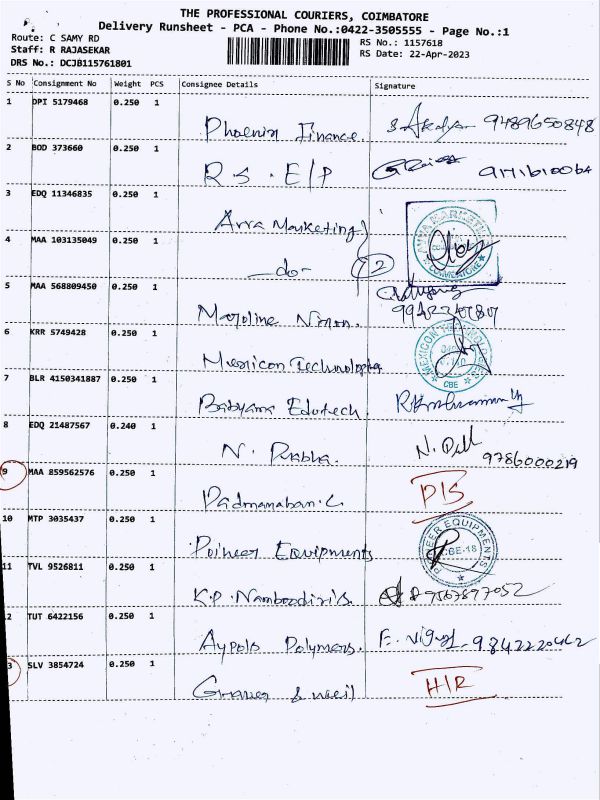 THE PROFESSIONAL COURIERS, COIMBATORE
Delivery Runsheet - PCA - Phone No.:0422-3505555 - Page No.:1
Route: C SAMY RD
Staff: R RAJASEKAR
DRS No.: DCJB115761801
RS No.: 1157618
RS Date: 22-Apr-2023
S No Consignment No Weight PCS Consignee Details Signature
1 DPI 5179468 0.250 1
Phoenix Finance. 9489650848
2 BOD 373660 0.250 1
R S . E/P
3 EDQ 11346835 0.250 1
Arra Marketing
4 MAA 103135049 0.250 1
-do- 2
COIMBATORE
5 MAA 568809450 0.250 1
6 KRR 5749428 0.250 1
Mexicon Technologies
MEXICON TECHNOLOGIES
CBE
7 BLR 4150341887 0.250 1
Edutech.
8 EDQ 21487567 0.240 1
N. Prabha. 9786000219
9 MAA 859562576 0.250 1
Padmanaban.C D/S
10 MTP 3035437 0.250 1
Poineer Equipments
PIONEER EQUIPMENTS
CBE-18
11 TVL 9526811 0.250 1
K.P. Namboodiri's 9567897052
12 TUT 6422156 0.250 1
Aypols Polymers. 9842220462
13 SLV 3854724 0.250 1
Graves & weil H/R